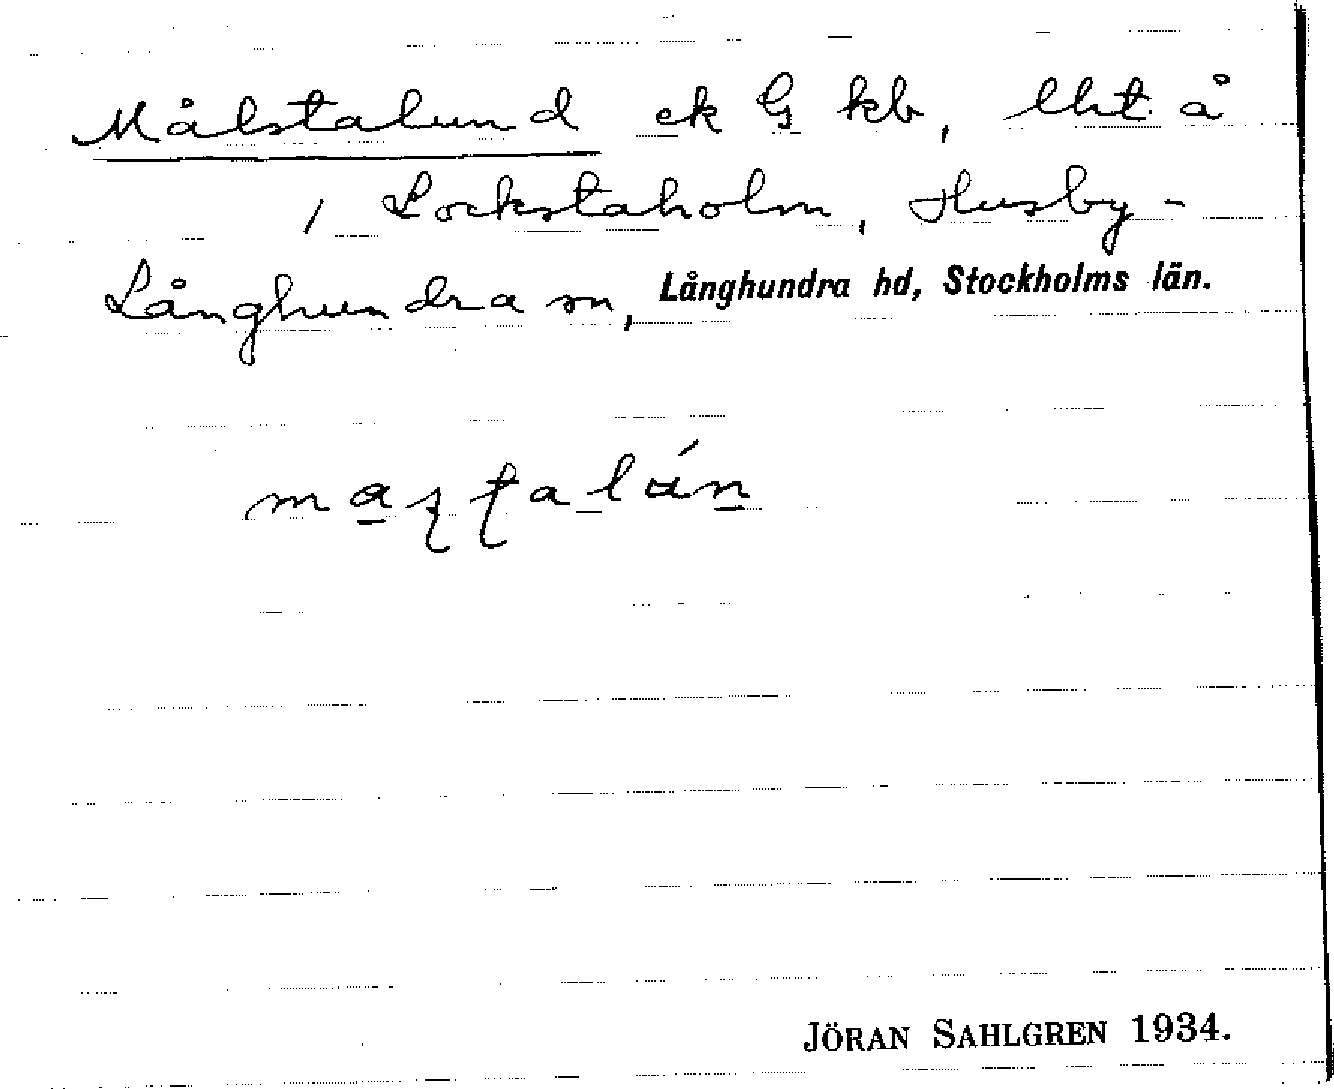 Målstalund ek G kb, lht å
/ Lockstaholm, Husby-
Långhundra sn, Långhundra hd, Stockholms län.
JÖRAN SAHLGREN 1934.